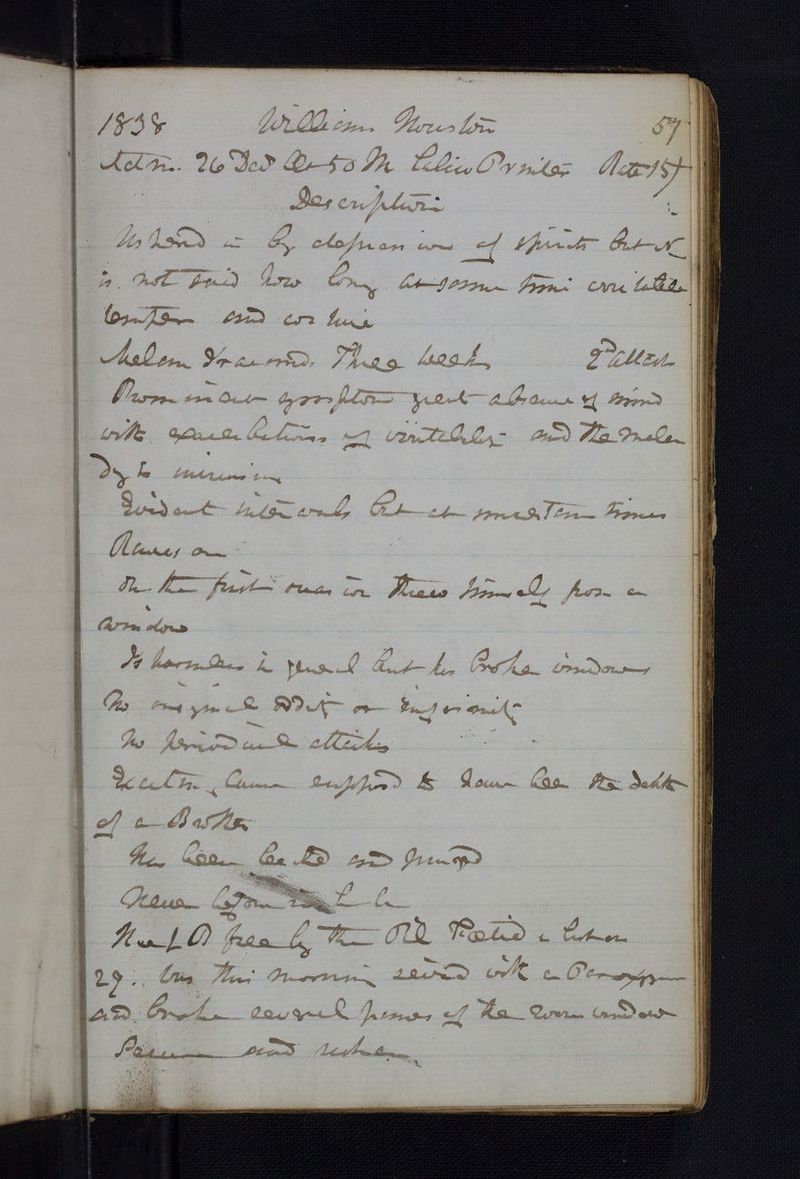 1838 William Houston 57
Admn. 26 Decr Aet 50 M Calico Printer Rate 15/
Description
Ushered in by depression of spirits but it
is not said how long at some time irritable
temper and
Three weeks 2d attack
Prominent symptom great absence of mind
with exacerbations of irritability and the mala
dy is
Evident intervals but at uncertain times
Raves on
On the first occasion threw himself from a
window
Is harmless in general but has broke windows
No original oddity or infirmity
No periodical attacks
Exciting Cause supposed to have been the death
of a Brother
Has been bled and purged
Never before in
freely the Pil Foetid
27. Was this morning seized with a Paroxysm
and broke several panes of the room window
and